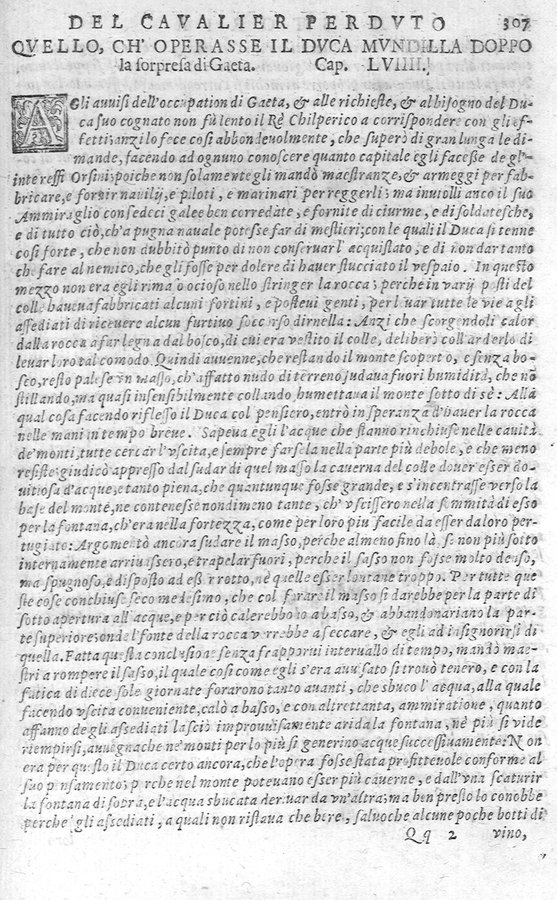 DEL CAVALIER PERDVTO 307
QVELLO, CH' OPERASSE IL DVCA MVNDILLA DOPPO
la sorpresa di Gaeta. Cap. LVIIII.
AGli auuisi dell'occupation di Gaeta, & alle richieste, & al bisogno del Du-
ca suo cognato non fù lento il Rè Chilperico a corrispondere con gli ef-
fetti; anzi lo fece così abbondevolmente, che superò di gran lunga le di-
mande, facendo ad ognuno conoscere quanto capitale egli facesse de gl'
interessi Orsini; poiche non solamente gli mandò maestranze, & armeggi per fab-
bricare, e fornir nauilij, e piloti, e marinari per reggerli; ma inuiolli anco il suo
Ammiraglio con sedeci galee ben corredate, e fornite di ciurme, e di soldatesche,
e di tutto ciò, ch'a pugna nauale potesse far di mestieri; con le quali il Duca si tenne
così forte, che non dubbitò punto di non conseruar l'acquistato, e di non dar tanto
che fare al nemico, che gli fosse per dolere di hauer stucciato il vespaio. In questo
mezzo non era egli rimaso ocioso nello stringer la rocca; perche in varij posti del
colle haueua fabbricati alcuni fortini, e posteui genti, per leuar tutte le vie a gli
assediati di riceuere alcun furtiuo soccorso dirnella: Anzi che scorgendoli calar
dalla rocca a far legna dal bosco, di cui era vestito il colle, deliberò coll'arderlo di
leuar loro tal comodo. Quindi auuenne, che restando il monte scoperto, e senza bo-
sco, restò palese vn masso, ch'affatto nudo di terreno sudaua fuori humidità, che nō
stillando, ma quasi insensibilmente collando, humettaua il monte sotto di sè: Alla
qual cosa facendo riflesso il Duca col pensiero, entrò in speranza d'hauer la rocca
nelle mani in tempo breve. Sapeua egli l'acque che stanno rinchiuse nelle cauità
de' monti, tutte cercar l'vscita, e sempre farsela nella parte più debole, e che meno
resiste: giudicò appresso dal sudar di quel masso la cauerna del colle douer esser do-
uitiosa d'acque, e tanto piena, che quantunque fosse grande, e s'incentrasse verso la
base del monte, ne contenesse nondimeno tante, ch'vscissero nella sommità di esso
per la fontana, ch'era nella fortezza, come per loro più facile da esser da loro per-
tugiato: Argomentò ancora sudare il masso, perche almeno fino là, se non più sotto
internamente arriuassero, e trapelar fuori, perche il sasso non fosse molto denso,
ma spugnoso, e disposto ad esser rotto, nè quelle esser lontane troppo. Per tutte que
ste cose conchiuse seco medesimo, che col forare il masso si darebbe per la parte di
sotto apertura all'acque, e perciò calerebbono a basso, & abbandonariano la par-
te superiore; onde l'fonte della rocca verrebbe a seccare, & egli ad insignorirsi di
quella. Fatta questa conclusione senza frapporui interuallo di tempo, mandò mae-
stri a rompere il sasso, il quale così come egli s'era auuisato si trouò tenero, e con la
fatica di diece sole giornate forarono tanto auanti, che sbucò l'acqua, alla quale
facendo vscita conueniente, calò a basso, e con altrettanta, ammiratione, quanto
affanno de gli assediati lasciò improuuisamente arida la fontana, nè più si vide
riempirsi, auuegnache ne' monti per lo più si generino acque successiuamente: Non
era per questo il Duca certo ancora, che l'opera fosse stata profitteuole conforme al
suo pensamento; perche nel monte poteuano esser più cauerne, e dall'vna scaturir
la fontana di sopra, e l'acqua sbucata deriuar da vn'altra; ma ben presto lo conobbe
perche gli assediati, a quali non ristaua che bere, saluoche alcune poche botti di
Qq 2 vino,